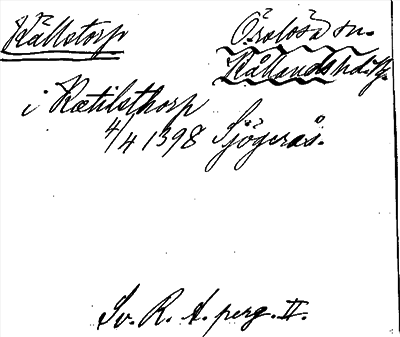 Källstorp Örslösa sn.
Kållands hd. Vg.
i Kætilsthorp
4/4 1398 Sjögerås.
Sv. R. A. perg. II.